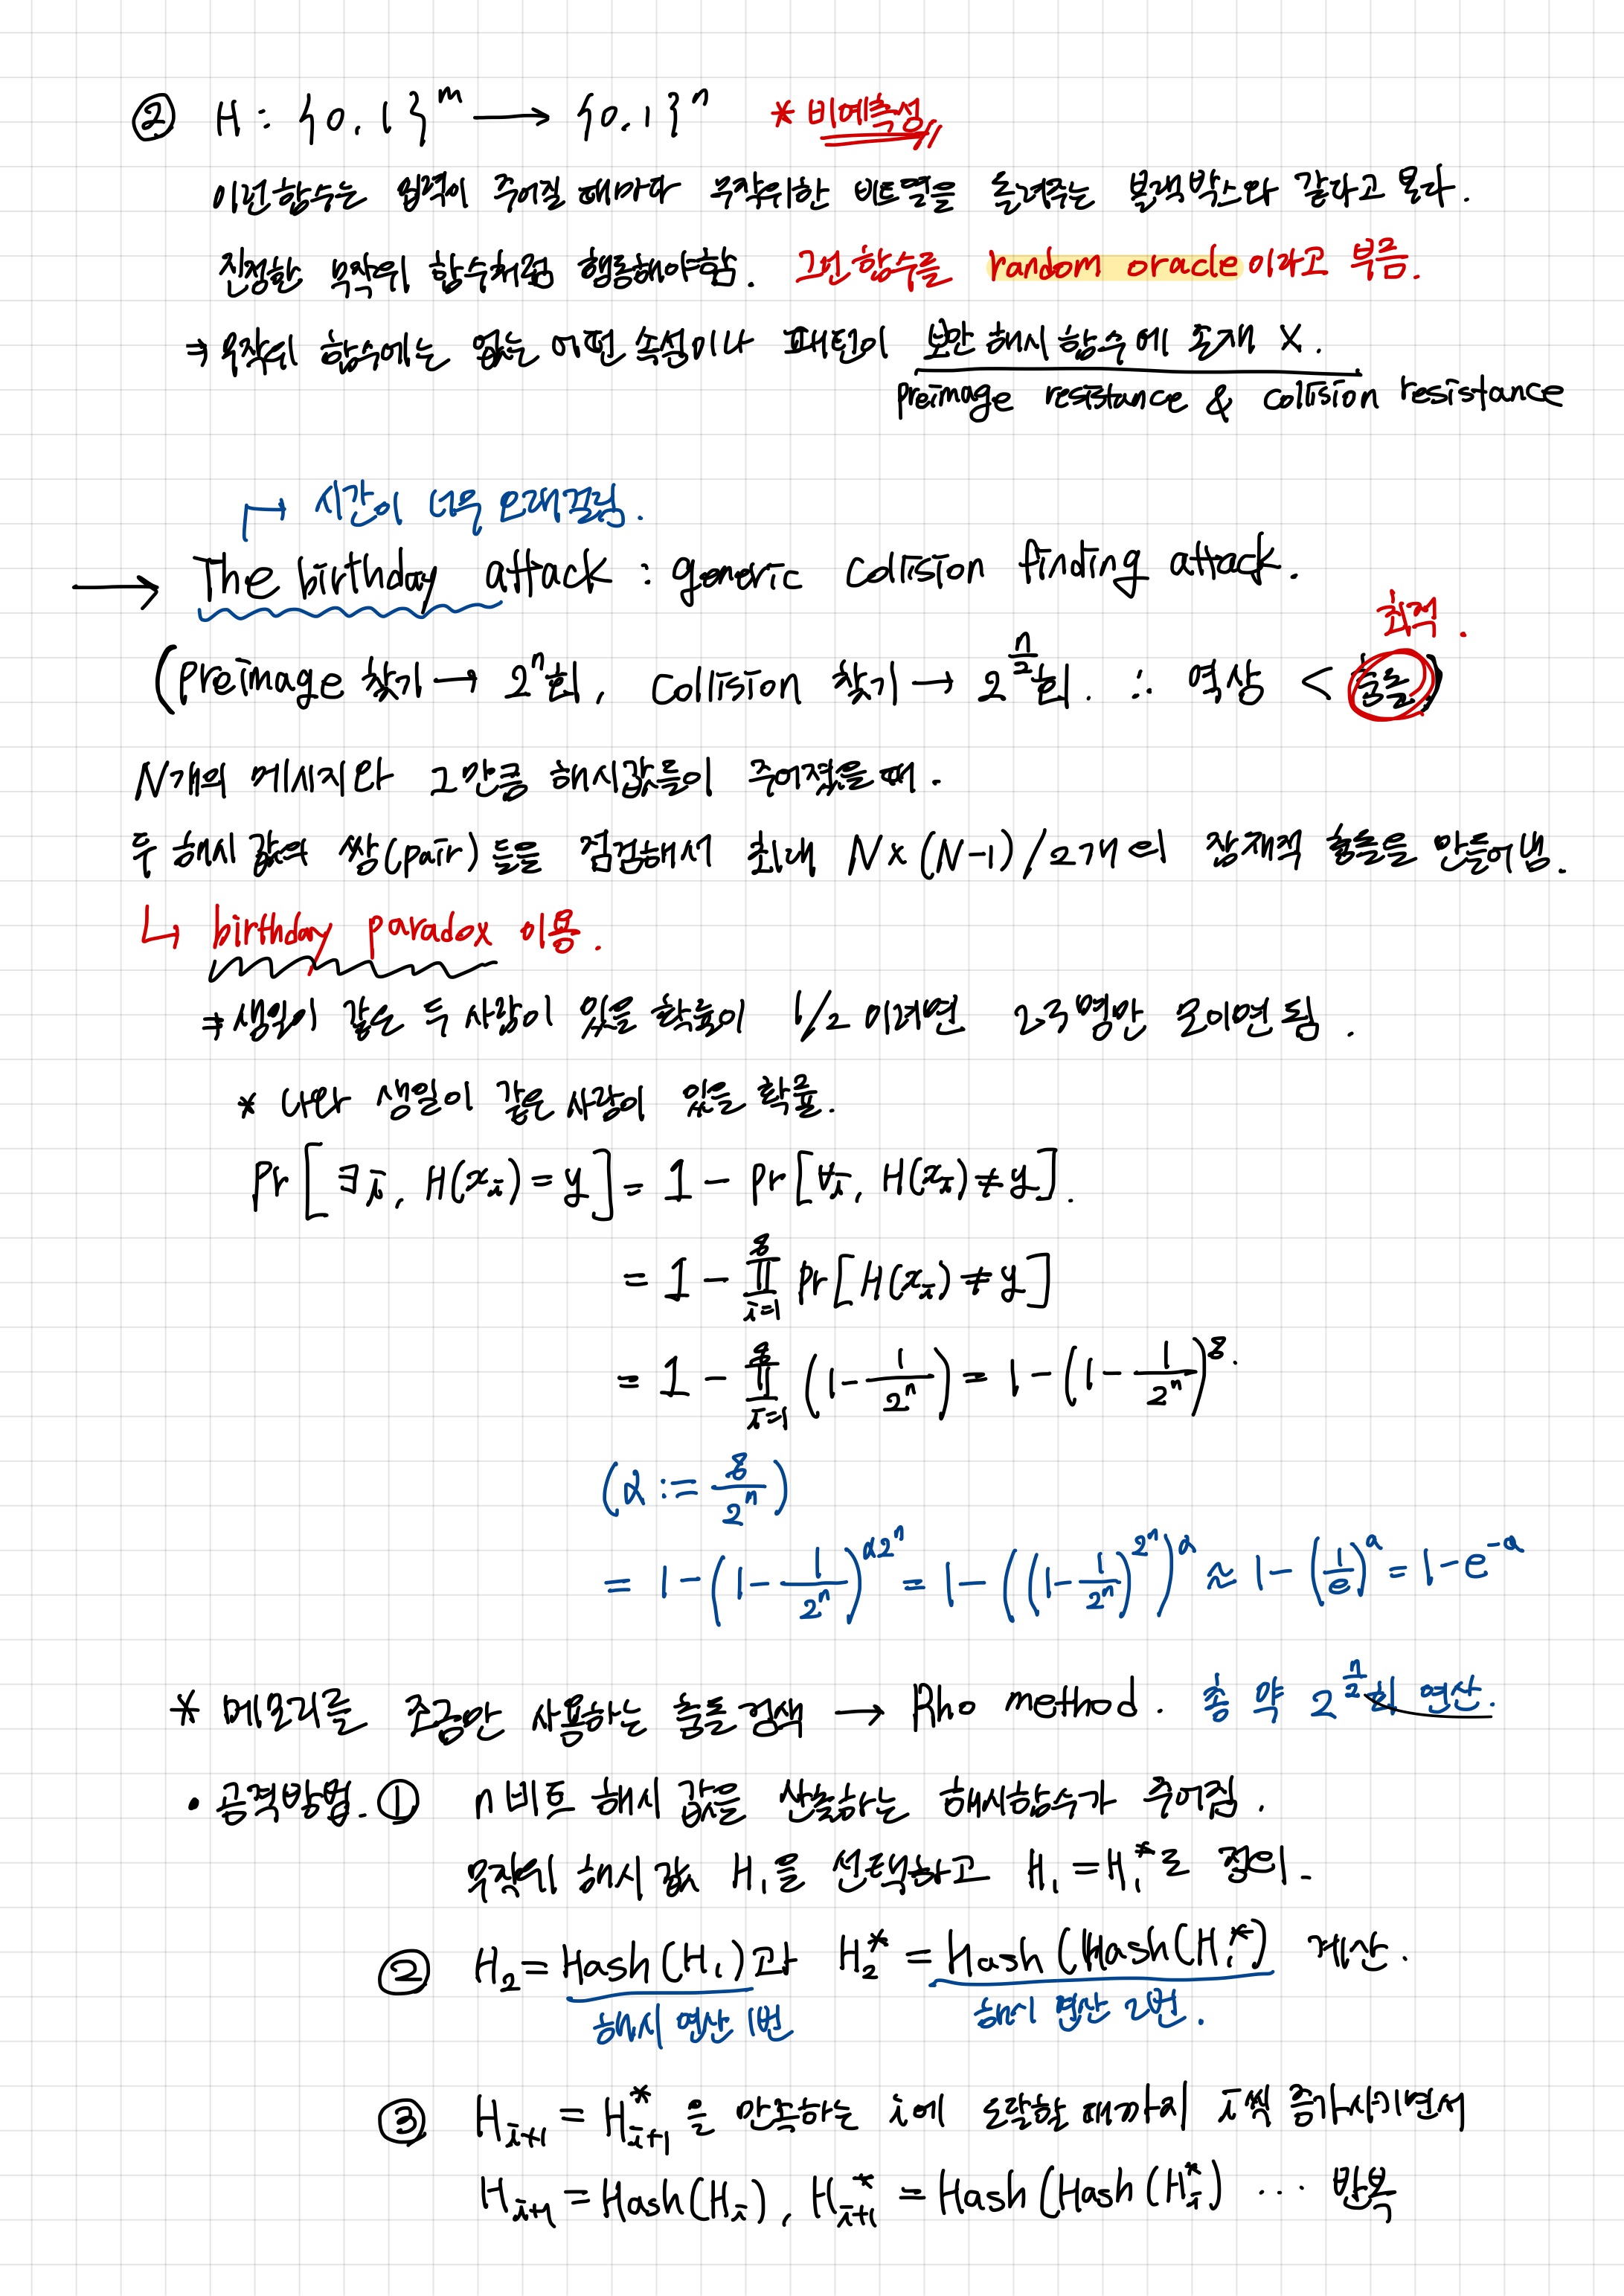 ② H : {0, 1}^m → {0, 1}^n * 비예측성
이런 함수는 입력이 주어질 때마다 무작위한 비트열을 돌려주는 블랙박스와 같다고 본다.
진정한 무작위 함수처럼 행동해야함. 그런 함수를 random oracle이라고 부름.
⇒ 무작위 함수에는 없는 어떤 속성이나 패턴이 보안 해시 함수에 존재 X.
preimage resistance & collision resistance
↦ 시간이 너무 오래걸림.
→ The birthday attack : generic collision finding attack.
최적.
(preimage 찾기 → 2^n회, collision 찾기 → 2^{n/2}회. ∴ 역상 < 충돌)
N개의 메시지와 그만큼 해시값들이 주어졌을 때.
두 해시 값의 쌍(pair) 들을 점검해서 최대 N×(N-1)/2개의 잠재적 충돌을 만들어냄.
↳ birthday paradox 이용.
⇒ 생일이 같은 두 사람이 있을 확률이 1/2 이려면 23명만 모이면 됨.
* 나와 생일이 같은 사람이 있을 확률.
Pr[∃i, H(x_i) = y] = 1 - Pr[∀i, H(x_i) ≠ y].
= 1 - ∏_{i=1}^{8} Pr[H(x_i) ≠ y]
= 1 - ∏_{i=1}^{8} (1 - 1/2^n) = 1 - (1 - 1/2^n)^8.
(α := 8/2^n)
= 1 - (1 - 1/2^n)^{α2^n} = 1 - ((1 - 1/2^n)^{2^n})^α ≈ 1 - (1/e)^a = 1 - e^{-a}
* 메모리를 조금만 사용하는 충돌 검색 → Rho method. 총 약 2^{n/2}회 연산.
• 공격방법. ① n비트 해시 값을 산출하는 해시함수가 주어짐.
무작위 해시 값 H_1을 선택하고 H_1 = H_1^*로 정의.
② H_2 = Hash(H_1)과 H_2^* = Hash(Hash(H_1^*) 계산.
해시 연산 1번 해시 연산 2번.
③ H_{i+1} = H_{i+1}^* 을 만족하는 i에 도달할 때까지 i씩 증가시키면서
H_{i+1} = Hash(H_i), H_{i+1}^* = Hash(Hash(H_i^*) ... 반복